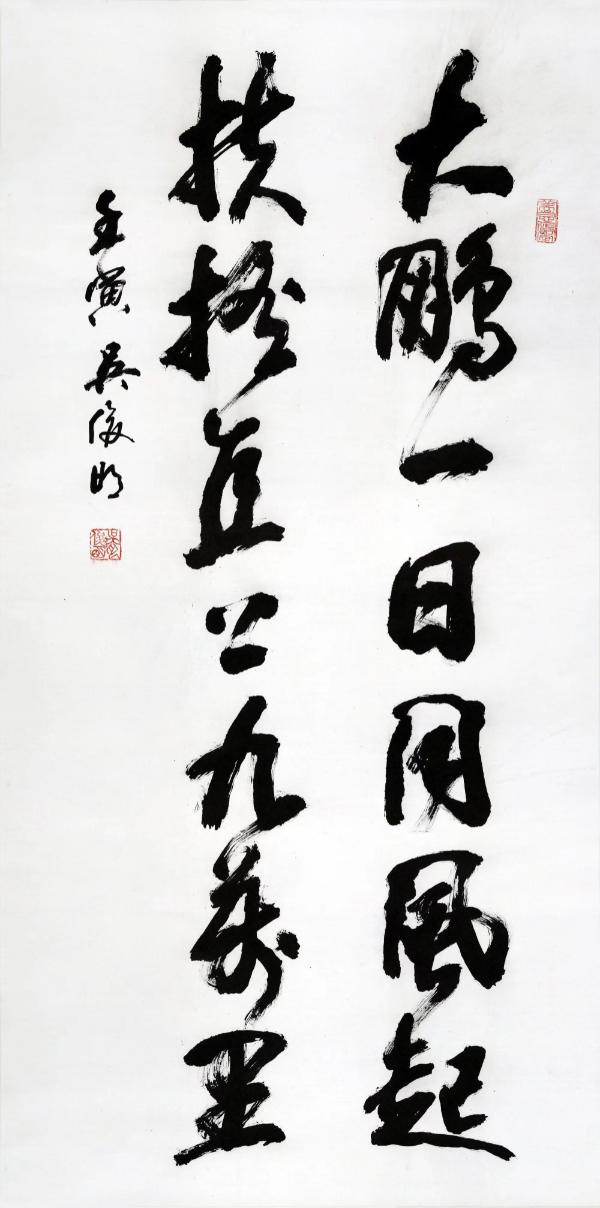 大鹏一日同风起
扶摇直上九万里
壬寅 吴俊明